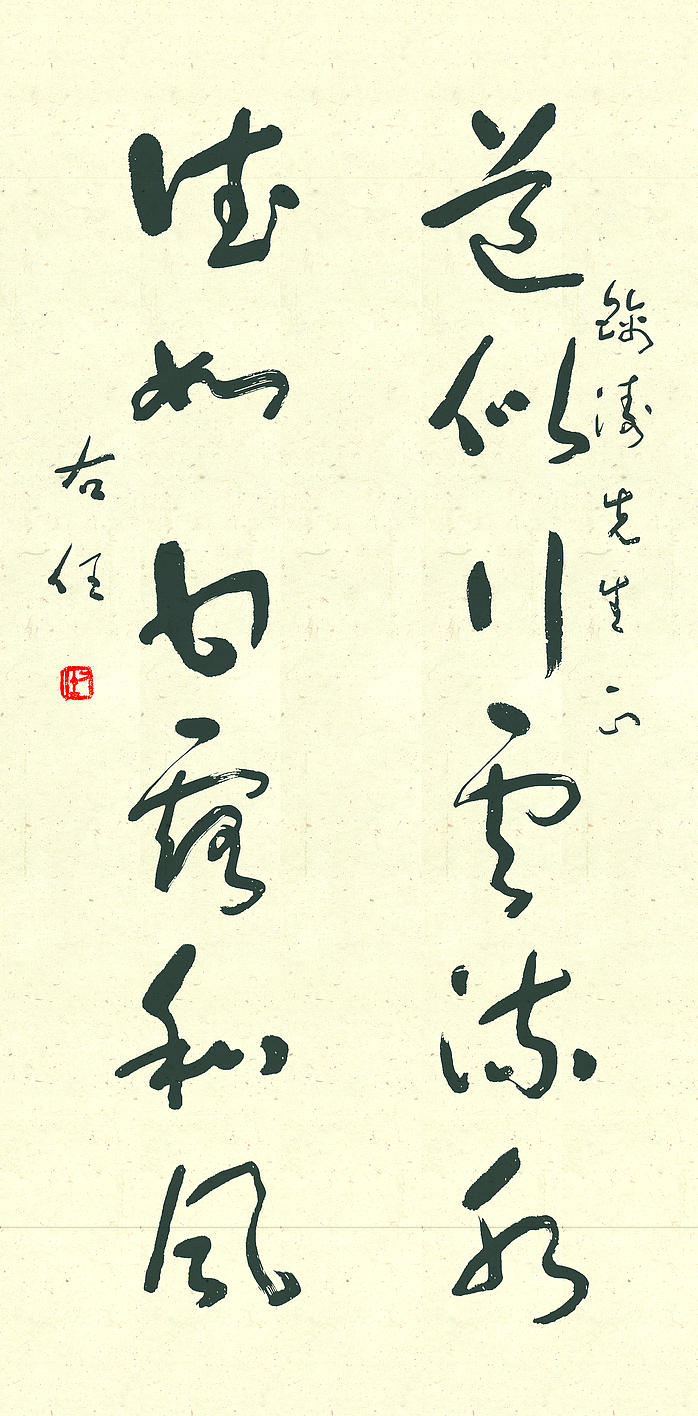 濤先生正
道似行雲流水
德如甘露和風
右任